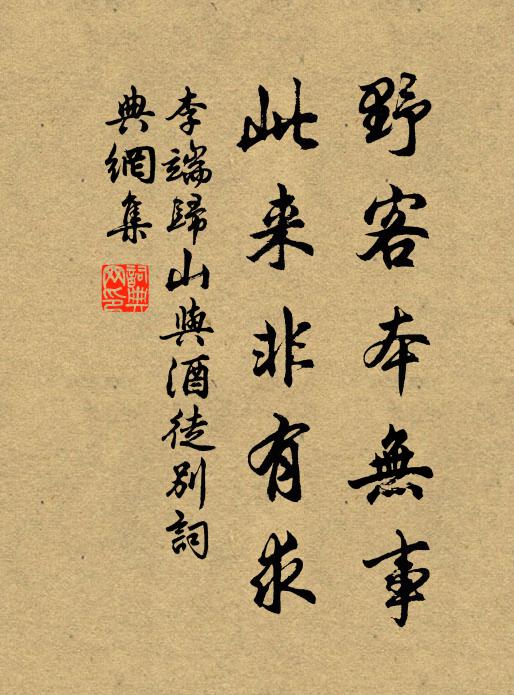 野客本無事
此来非有求
李端歸山與酒徒别詞
典網集
詞典
网印